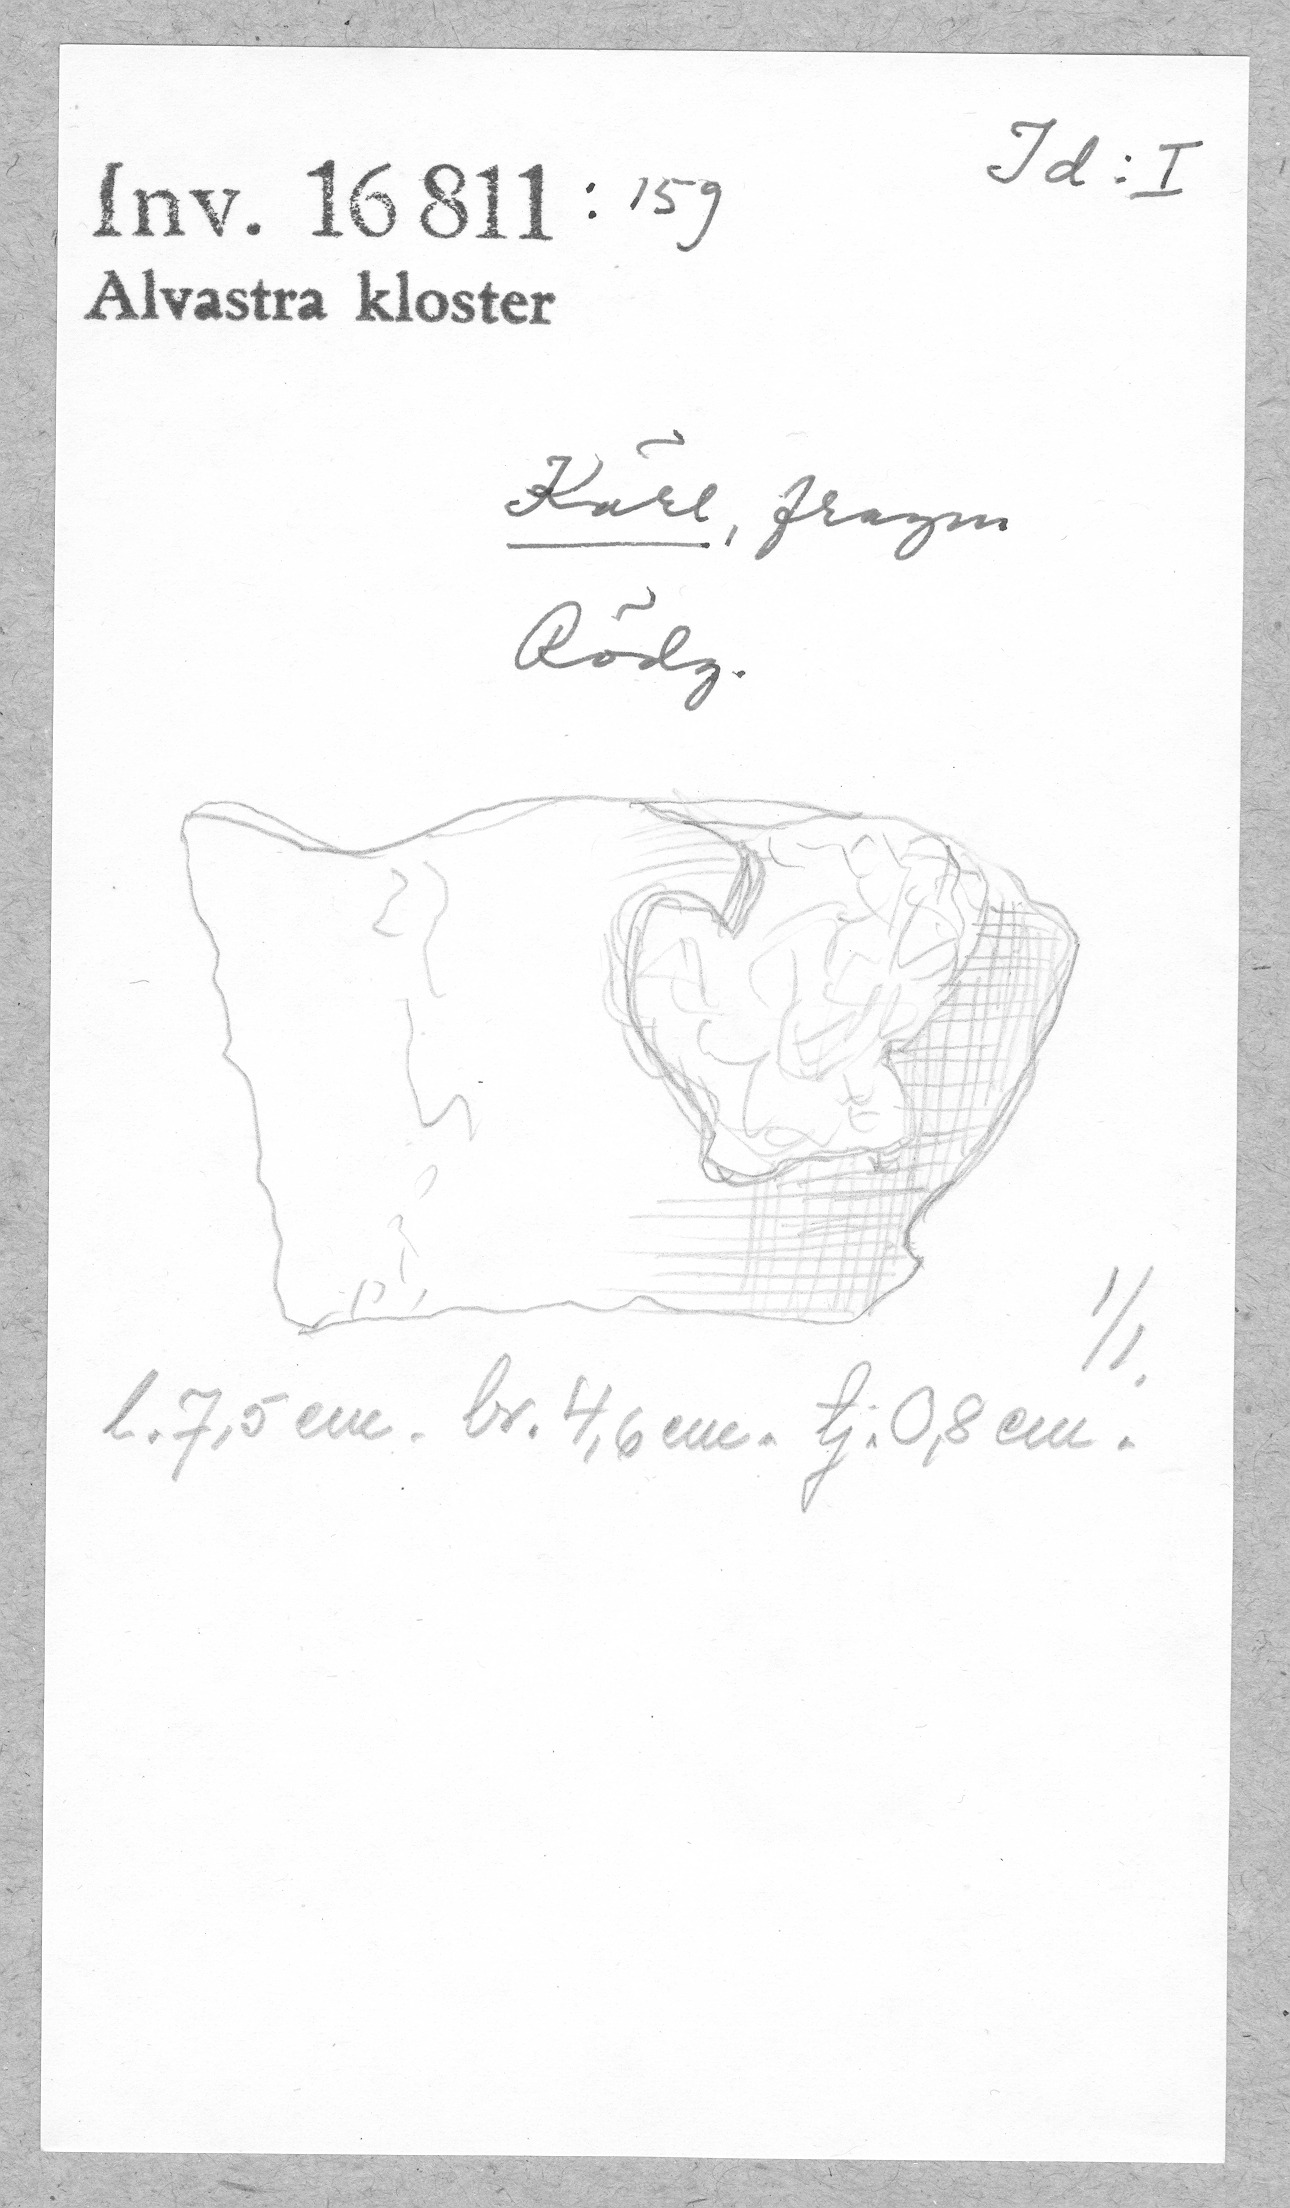 Id: I
Inv. 16 811 : 159
Alvastra kloster
Kärl, fragm
Rödg.
1/1.
l. 7,5 cm. br. 4,6 cm. tj: 0,8 cm.